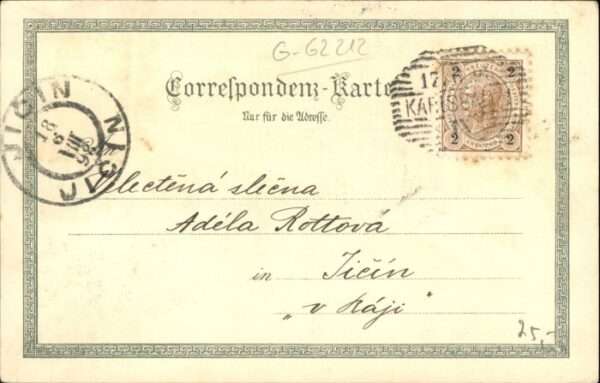 G-62212
Correspondenz-Karte
Nur für die Adresse.
17
KARLSB
2 2
2 2
JIČIN
18
8
98
JIČIN
Velectěná slečna
Adéla Rottová
in Jičín
„v ráji"
25,-